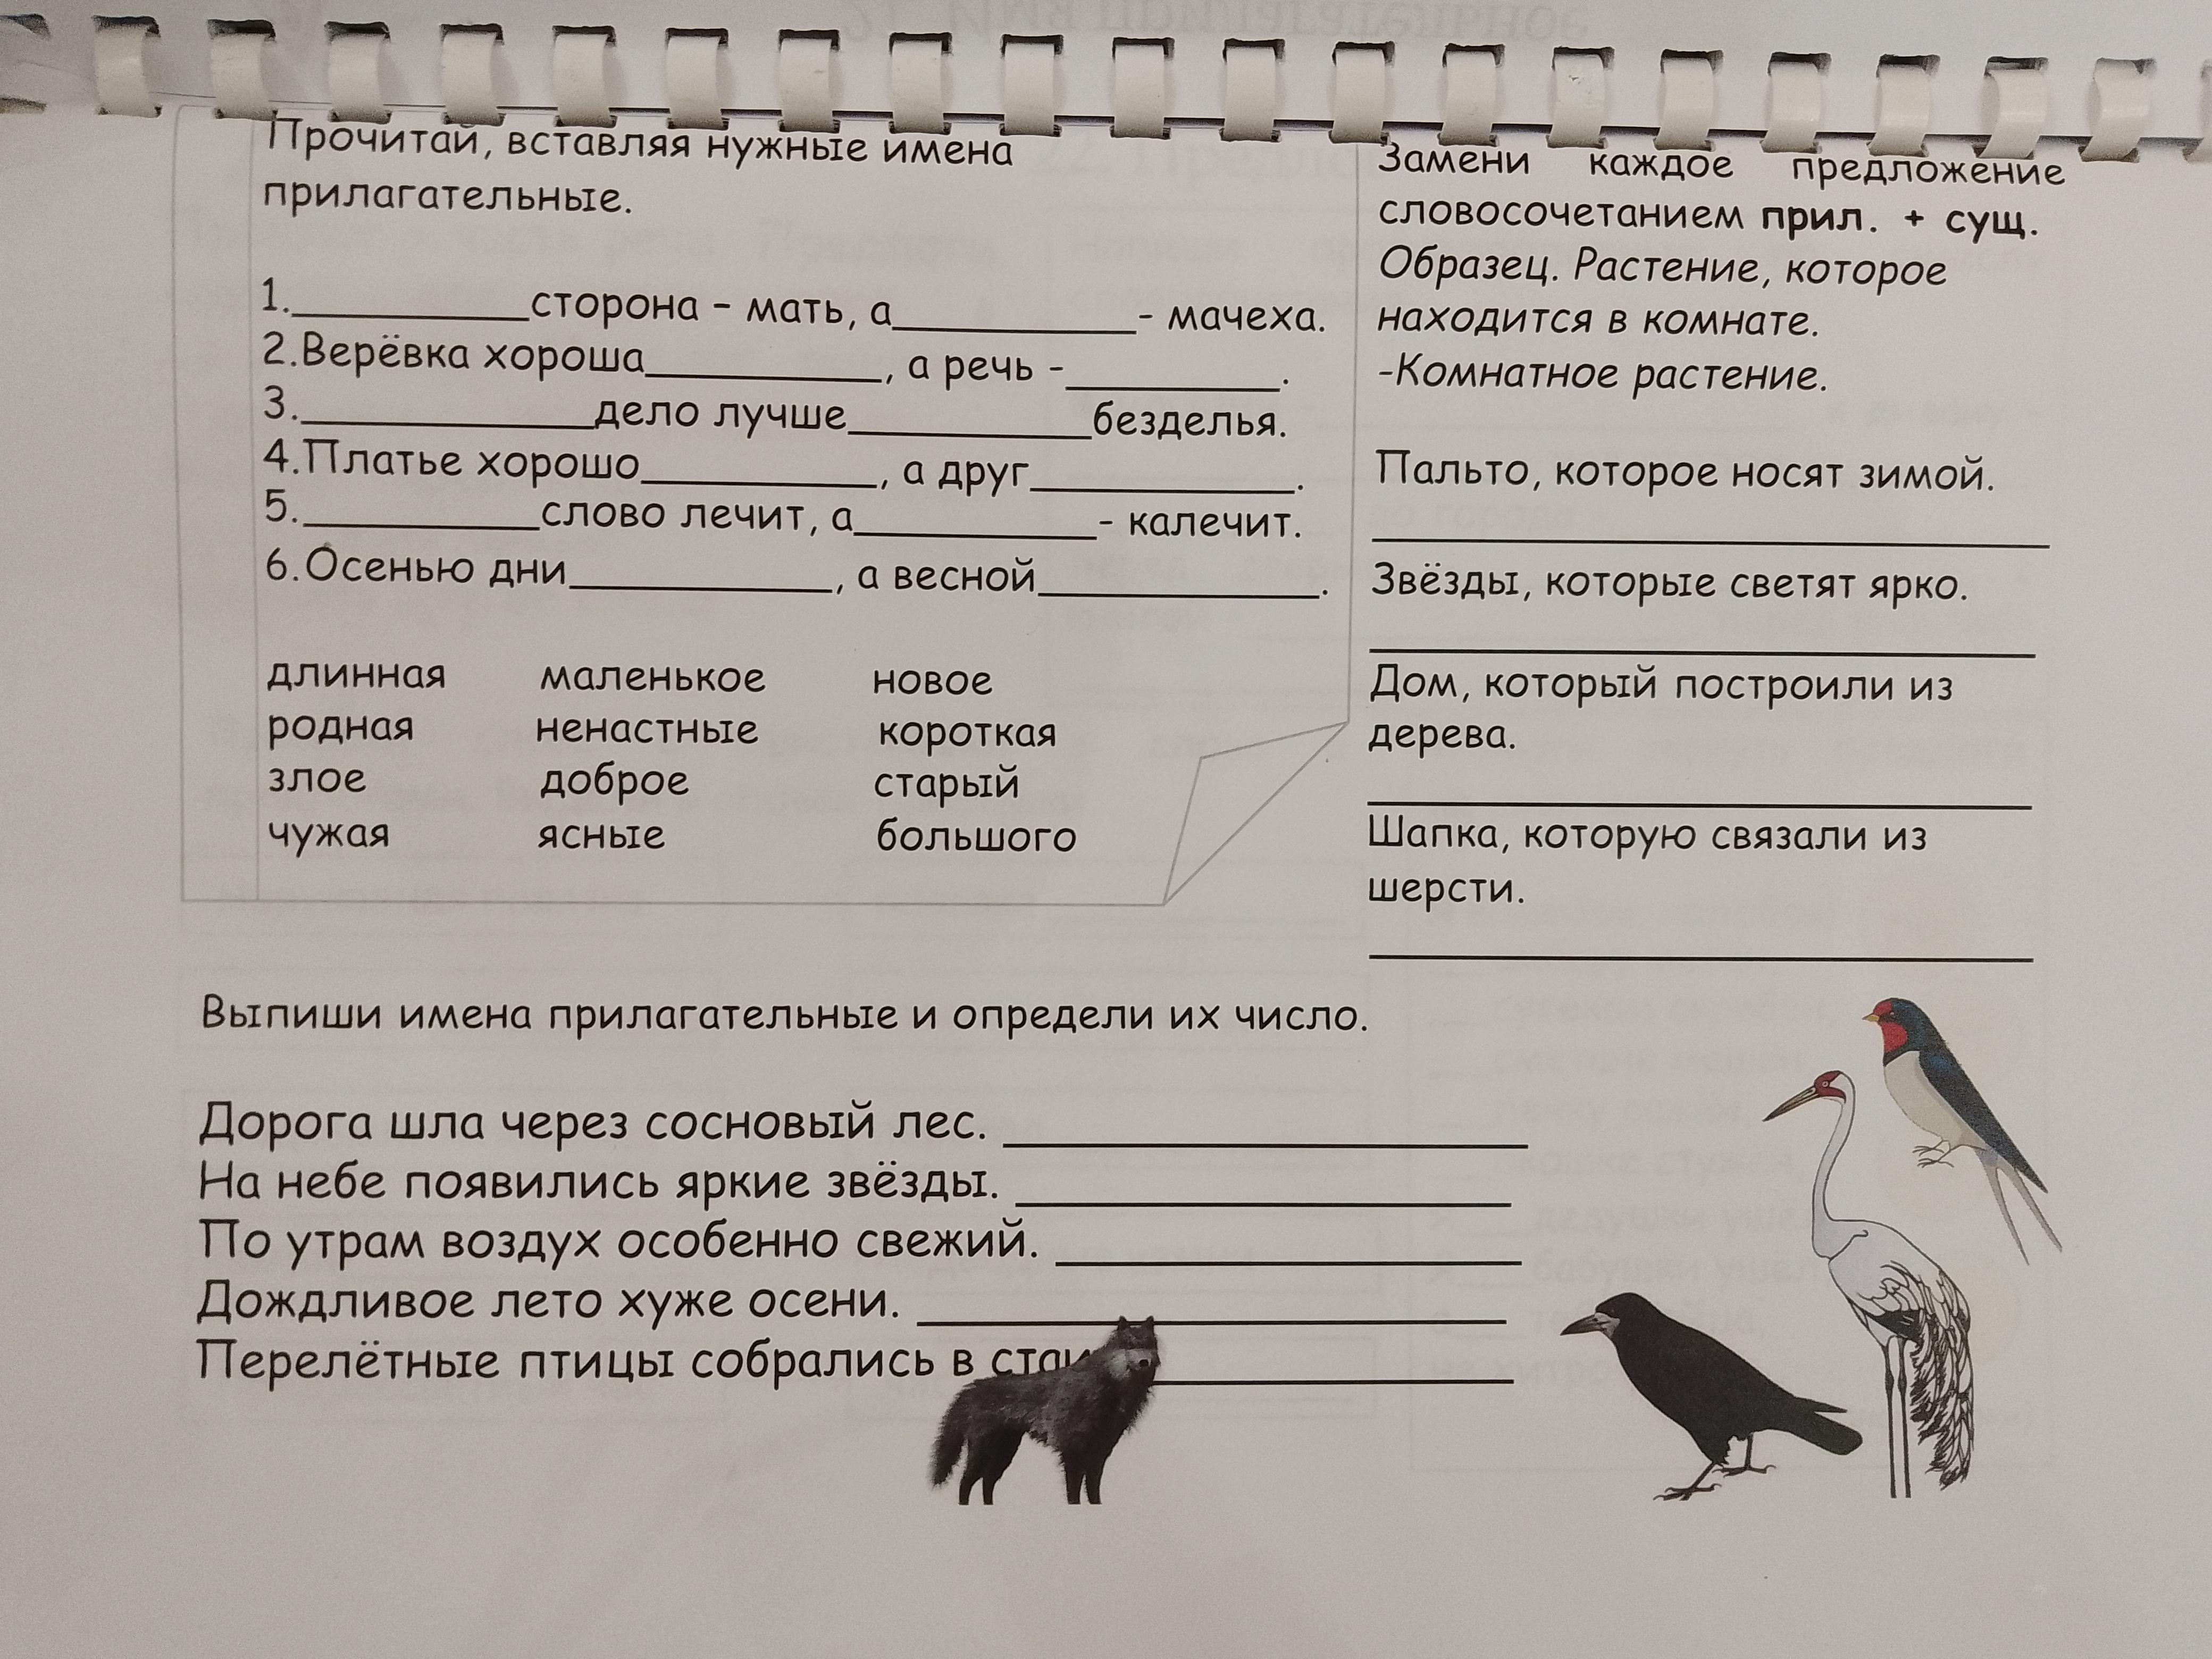 Прочитай, вставляя нужные имена
прилагательные.
1.__________сторона – мать, а__________- мачеха.
2.Верёвка хороша__________, а речь -_________.
3.____________дело лучше__________безделья.
4.Платье хорошо__________, а друг___________.
5.__________слово лечит, а__________- калечит.
6.Осенью дни___________, а весной____________.
длинная маленькое новое
родная ненастные короткая
злое доброе старый
чужая ясные большого
Замени каждое предложение
словосочетанием прил. + сущ.
Образец. Растение, которое
находится в комнате.
-Комнатное растение.
Пальто, которое носят зимой.
Звёзды, которые светят ярко.
Дом, который построили из
дерева.
Шапка, которую связали из
шерсти.
Выпиши имена прилагательные и определи их число.
Дорога шла через сосновый лес.
На небе появились яркие звёзды.
По утрам воздух особенно свежий.
Дождливое лето хуже осени.
Перелётные птицы собрались в стаи